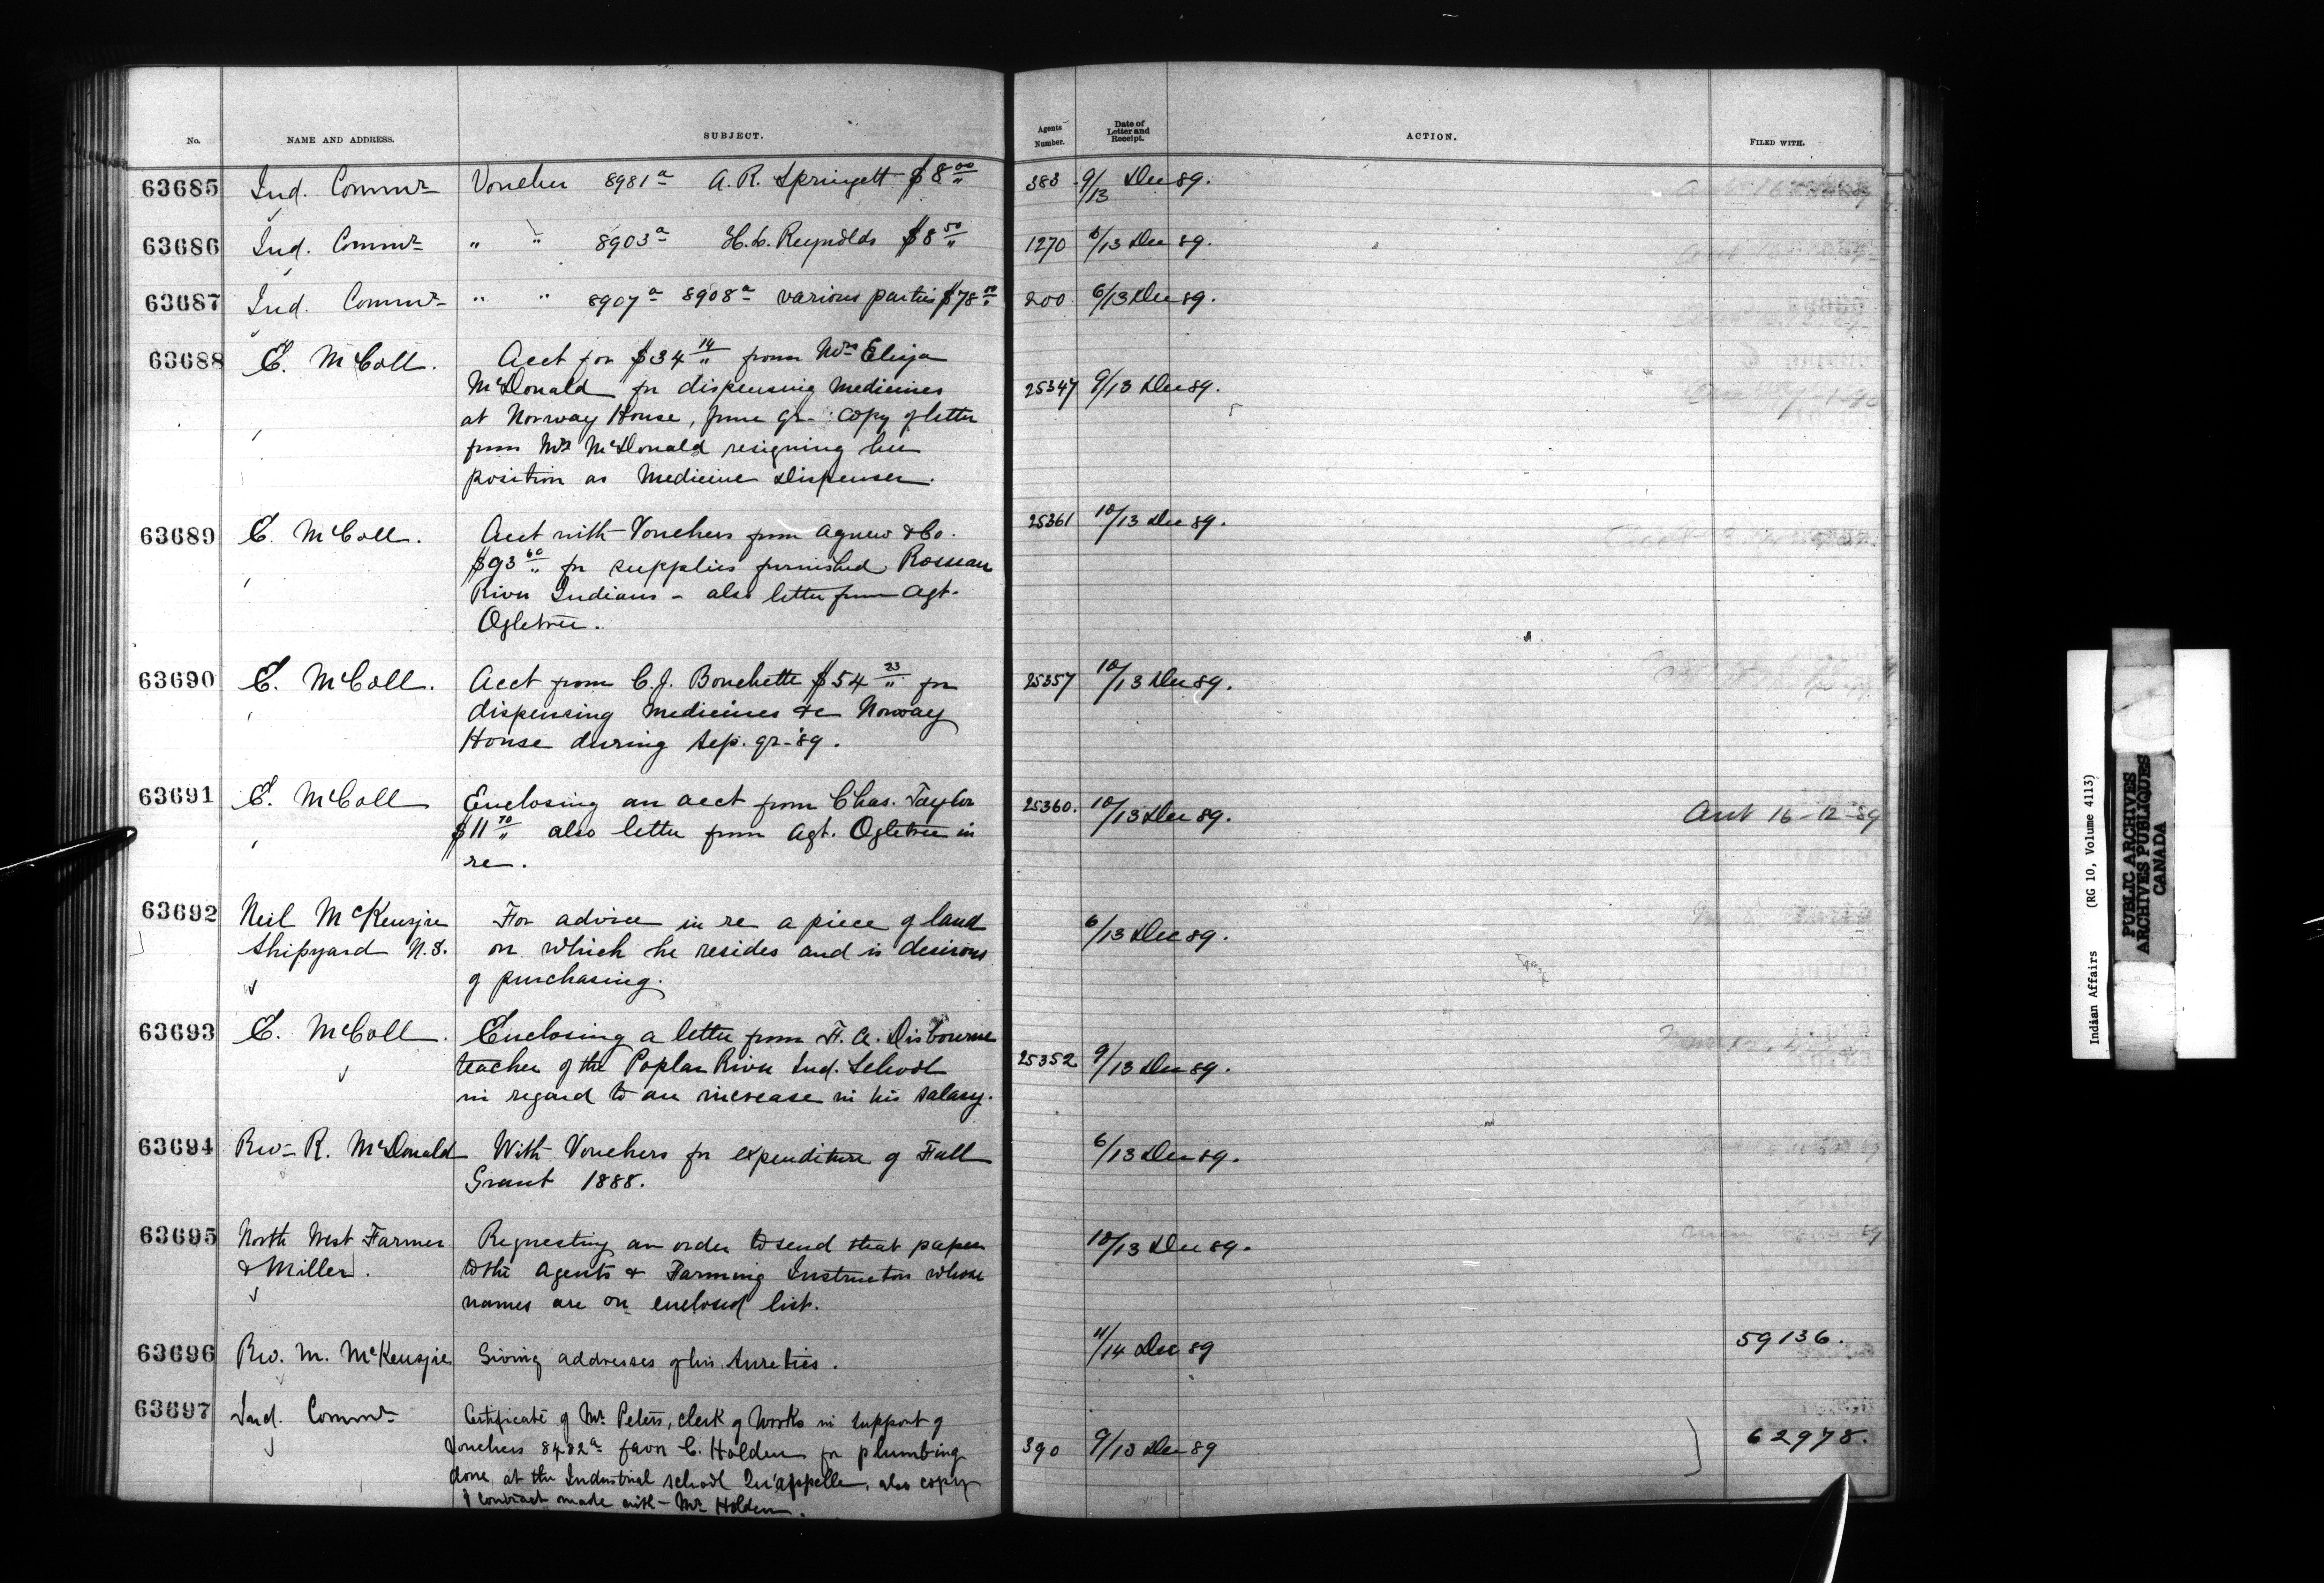 No. NAME AND ADDRESS. SUBJECT. Agents Number. Date of Letter and Receipt. ACTION. FILED WITH.
63685 Ind. Commr Voucher 8981a A. R. Springett $8 00/" 383 9/13 Dec 89.
63686 Ind. Commr " " 8903a Reynolds $8 50/" 1270 6/13 Dec 89.
63687 Ind. Commr " " 8907a 8908a various parties $78 200 6/13 Dec 89.
63688 E. McColl. Acct for $34 14/" from Mrs Eliza
McDonald for dispensing medicines 25347 9/13 Dec 89.
at Norway House, June qr- copy of letter
from Mrs McDonald resigning her
position as Medicine Dispenser.
63689 E. McColl. Acct with Vouchers from Agnew & Co. 25361 10/13 Dec 89.
$93 60/" for supplies furnished Roseau
River Indians - also letter from Agt.
Ogletree.
63690 E. McColl. Acct from C. J. Bouchette $54 23/" for 25357 10/13 Dec 89.
dispensing medicines &c Norway
House during Sep. qr- '89.
63691 E. McColl Enclosing an acct from Chas. Taylor 25360. 10/13 Dec 89. 16-12-89
$11 70/" also letter from Agt. Ogletree in
re.
63692 Neil McKenzie For advice in re a piece of land 6/13 Dec 89.
Shipyard N.S. on which he resides and is desirous
of purchasing.
63693 E. McColl. Enclosing a letter from F. A. Disbourne
teacher of the Poplar River Ind. School 25352 9/13 Dec 89.
in regard to an increase in his salary.
63694 Rev- R. McDonald With Vouchers for expenditure of Fall 6/13 Dec 89.
Grant 1888.
63695 North West Farmer Requesting an order to send that paper 10/13 Dec 89.
& Miller. to the Agents & Farming Instructors whose
names are on enclosed list.
63696 Rev. M. McKenzie Giving addresses of his Sureties. 11/14 Dec 89 59136.
63697 Ind. Commr Certificate of Mr. Peters, clerk of Works in support of
Vouchers 8482a favor C. Holden for plumbing 390 9/13 Dec 89 62978.
done at the Industrial school Qu'appelle, also copy
of contract made with Mr Holden.
Indian Affairs (RG 10, Volume 4113)
PUBLIC ARCHIVES
ARCHIVES PUBLIQUES
CANADA